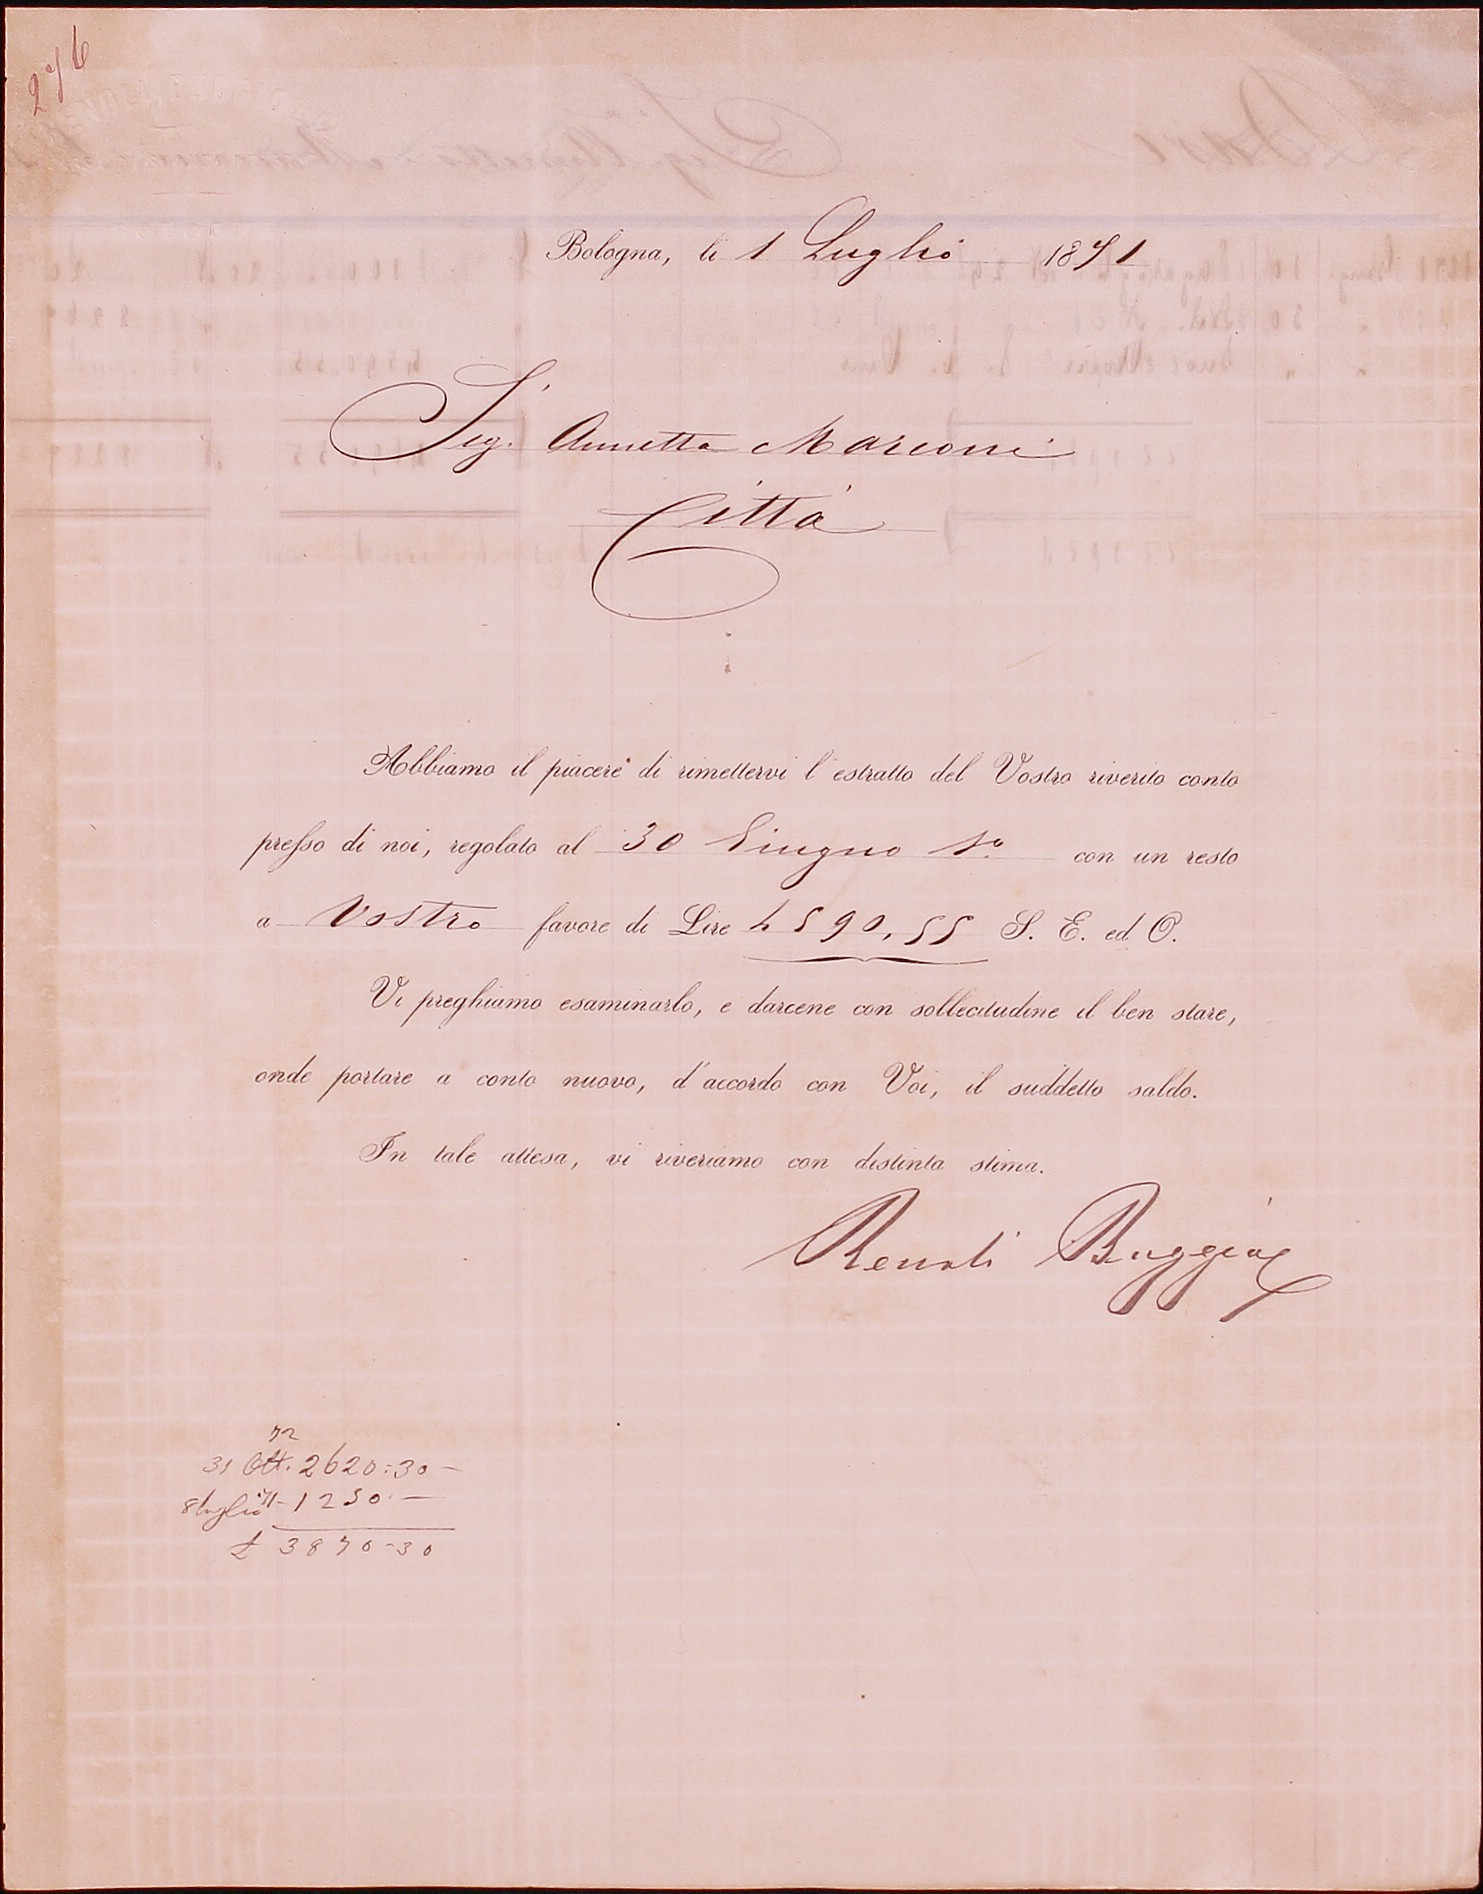 276
Bologna, li 1 Luglio 1871
Sig.ª Annetta Marconi
Città
Abbiamo il piacere di rimettervi l'estratto del Vostro riverito conto
presso di noi, regolato al 30 Giugno sº con un resto
a Vostro favore di Lire 4590,55 S. E. ed O.
Vi preghiamo esaminarlo, e darcene con sollecitudine il ben stare,
onde portare a conto nuovo, d'accordo con Voi, il suddetto saldo.
In tale attesa, vi riveriamo con distinta stima.
Renoli Buggio
72
31 Ott. 2620:30 —
8 luglio 71 - 1250 —
£ 3870-30